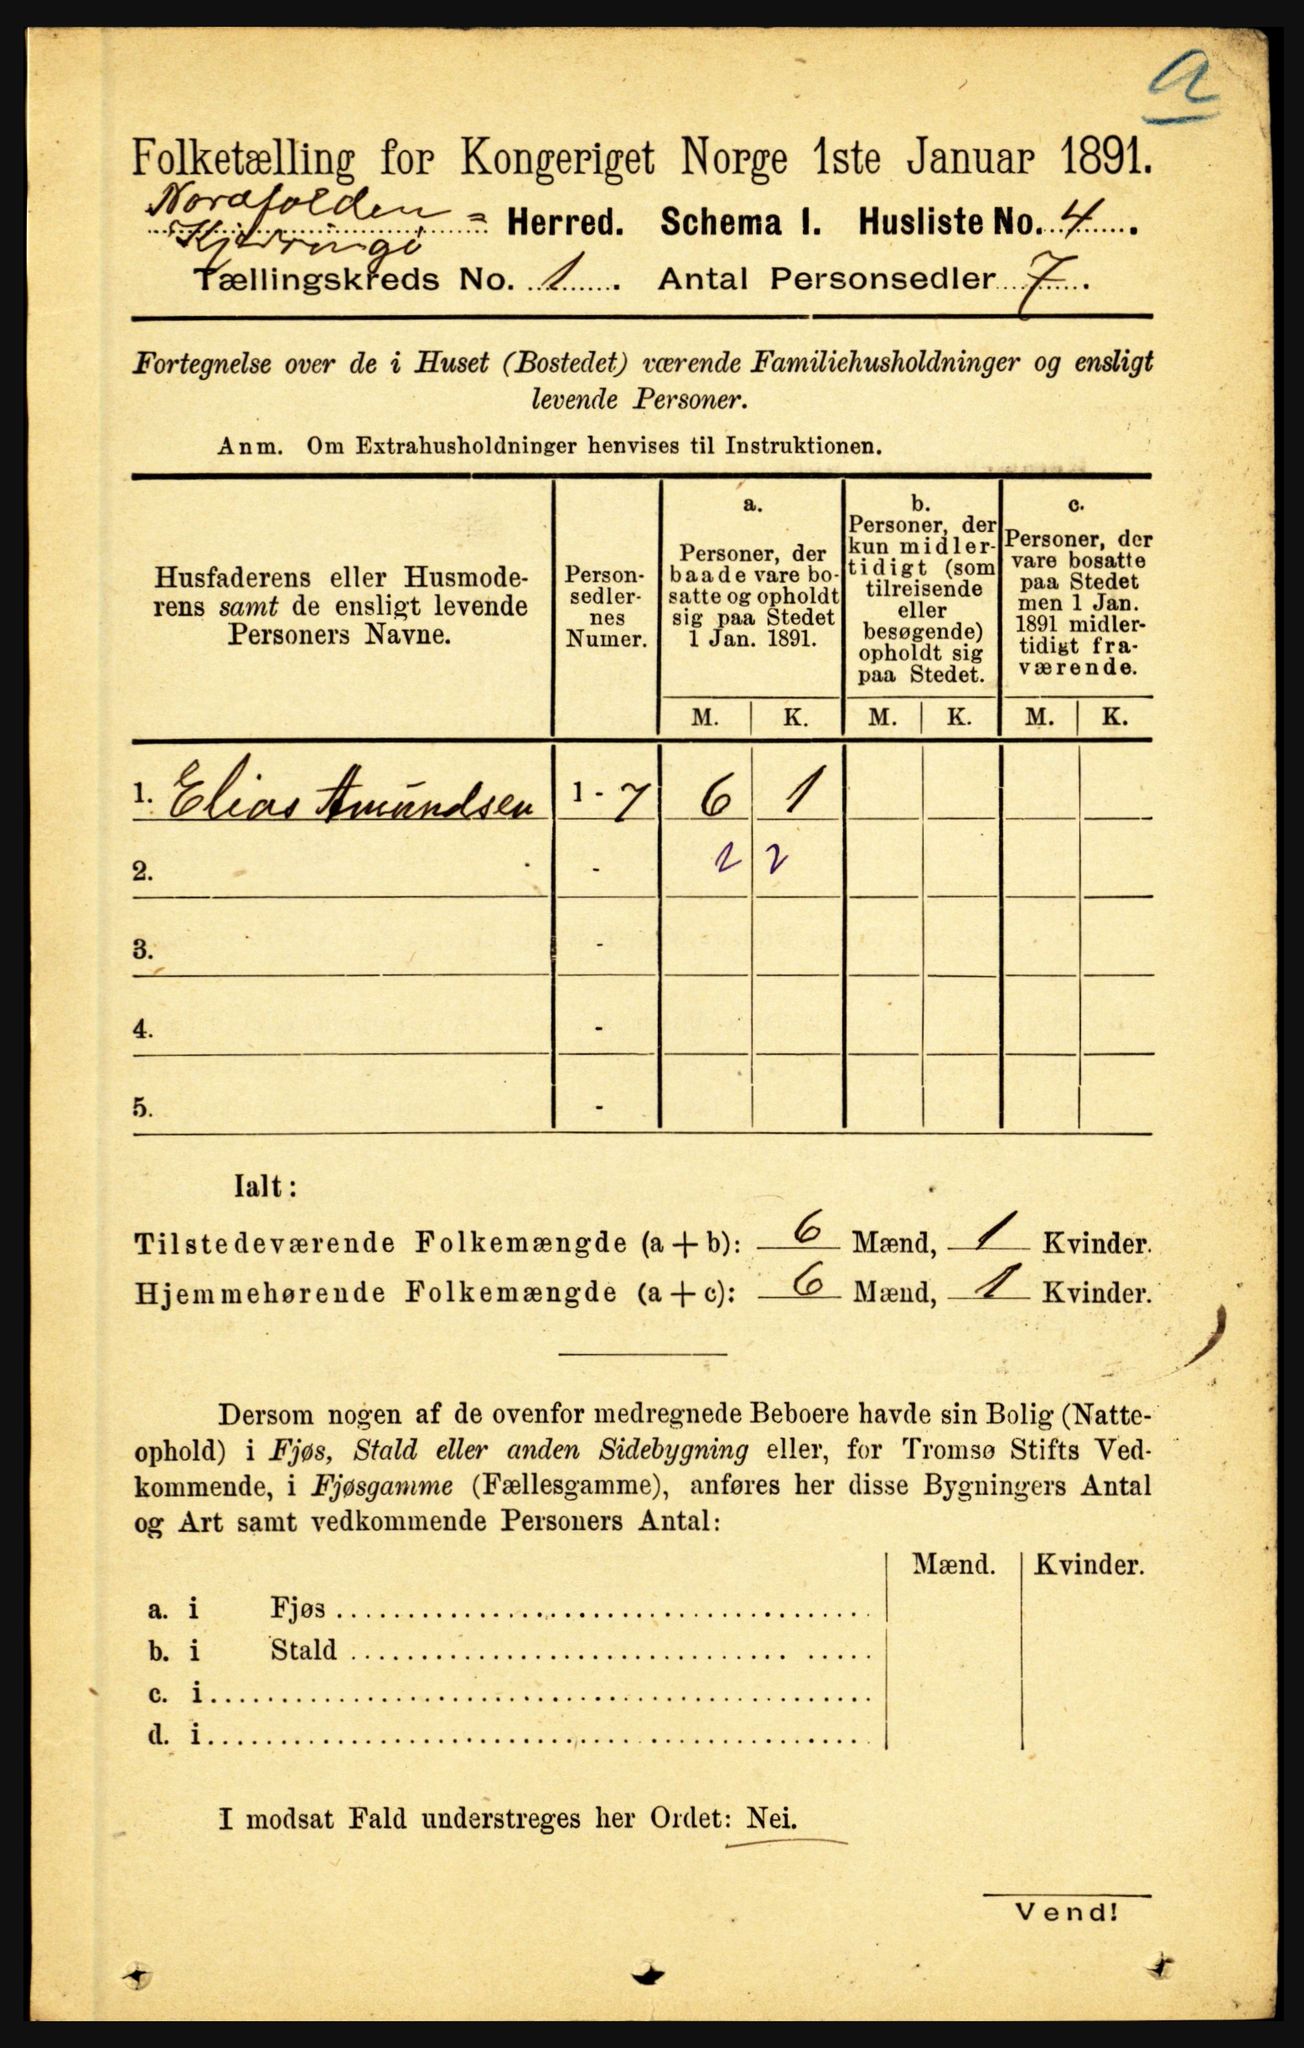 a
Folketælling for Kongeriget Norge 1ste Januar 1891.
Nordfolden
Kjerringø = Herred. Schema 1. Husliste No. 4.
Tællingskreds No. 1. Antal Personsedler 7.
Fortegnelse over de i Huset (Bostedet) værende Familiehusholdninger og ensligt
levende Personer.
Anm. Om Extrahusholdninger henvises til Instruktionen.
Husfaderens eller Husmode-
rens samt de ensligt levende
Personers Navne.
Person-
sedler-
nes
Numer.
a.
Personer, der
baade vare bo-
satte og opholdt
sig paa Stedet
1 Jan. 1891.
b.
Personer, der
kun midler-
tidigt (som
tilreisende
eller
besøgende)
opholdt sig
paa Stedet.
c.
Personer, der
vare bosatte
paa Stedet
men 1 Jan.
1891 midler-
tidigt fra-
værende.
M. K. M. K. M. K.
1. Elias Amundsen 1 - 7 6 1
2. - 2 2
3. -
4. -
5. -
Ialt:
Tilstedeværende Folkemængde (a + b): 6 Mænd, 1 Kvinder.
Hjemmehørende Folkemængde (a + c): 6 Mænd, 1 Kvinder.
Dersom nogen af de ovenfor medregnede Beboere havde sin Bolig (Natte-
ophold) i Fjøs, Stald eller anden Sidebygning eller, for Tromsø Stifts Ved-
kommende, i Fjøsgamme (Fællesgamme), anføres her disse Bygningers Antal
og Art samt vedkommende Personers Antal:
Mænd. Kvinder.
a. i Fjøs
b. i Stald
c. i
d. i
I modsat Fald understreges her Ordet: Nei.
Vend!